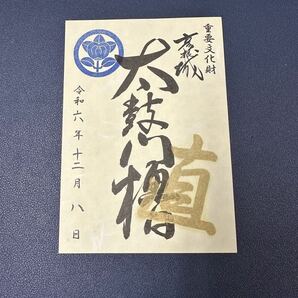 重要文化財
彦根城
太鼓門櫓
直
令和六年十二月八日